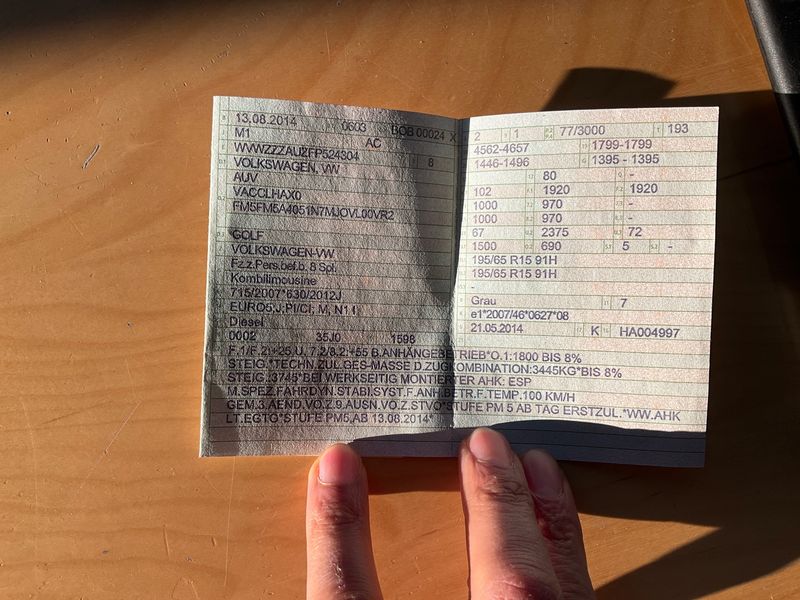 13.08.2014 0603 BOB 00024 X
M1 AC
WVWZZZAUZFP524304 8
VOLKSWAGEN, VW
AUV
VACCLHAX0
FM5FM5A4051N7MJOVL00VR2
GOLF
VOLKSWAGEN-VW
Fz.z.Pers.bef.b. 8 Spl.
Kombilimousine
715/2007*630/2012J
EURO5;J;PI/CI; M, N1 I
Diesel
0002 35J0 1598
2 1 77/3000 193
4562-4657 1799-1799
1446-1496 1395 - 1395
80 -
102 1920 1920
1000 970 -
1000 970 -
67 2375 72
1500 690 5 -
195/65 R15 91H
195/65 R15 91H
-
Grau 7
e1*2007/46*0627*08
21.05.2014 K HA004997
F.1/F.2:+25,U.7.2/8.2:+55 B.ANHÄNGEBETRIEB*O.1:1800 BIS 8%
STEIG.*TECHN.ZUL.GES-MASSE D.ZUGKOMBINATION:3445KG*BIS 8%
STEIG.:3745*BEI WERKSEITIG MONTIERTER AHK: ESP
M.SPEZ.FAHRDYN.STABI.SYST.F.ANH.BETR.F.TEMP.100 KM/H
GEM.3.AEND.VO.Z.9.AUSN.VO.Z.STVO*STUFE PM 5 AB TAG ERSTZUL.*WW.AHK
LT.EGTG*STUFE PM5,AB 13.08.2014*